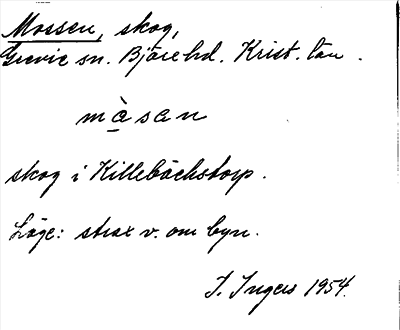 Mossen, skog,
Grevie sn. Bjäre hd. Krist. län.
mà̱san
skog i Killebäckstorp.
Läge: strax v. om byn.
I. Ingers 1954.